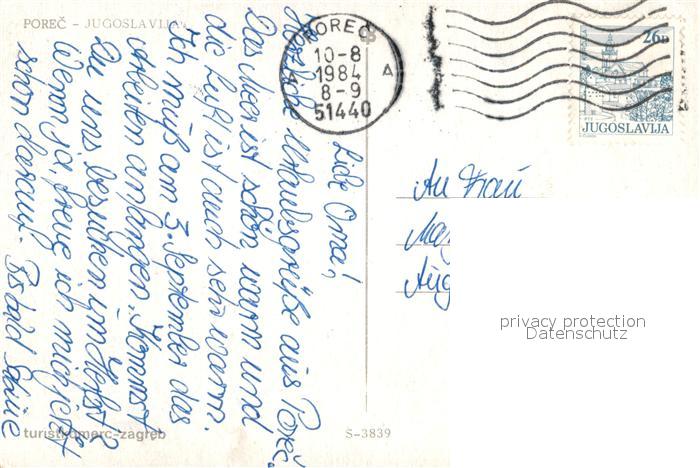 POREČ - JUGOSLAVIJA
POREČ
10-8
1984
8-9
51440
26D
JUGOSLAVIJA
Liebe Oma!
Herzliche Urlaubsgrüße aus Poreč.
Das Meer ist schön warm und
die Luft ist auch sehr warm.
Ich muß am 3. September das
Arbeiten anfangen. Kommst
Du uns besuchen im Herbst?
Wenn ja, freue ich mich jetzt
schon darauf. Bis bald
An Frau
privacy protection
Datenschutz
turistkomerc-zagreb
S-3839